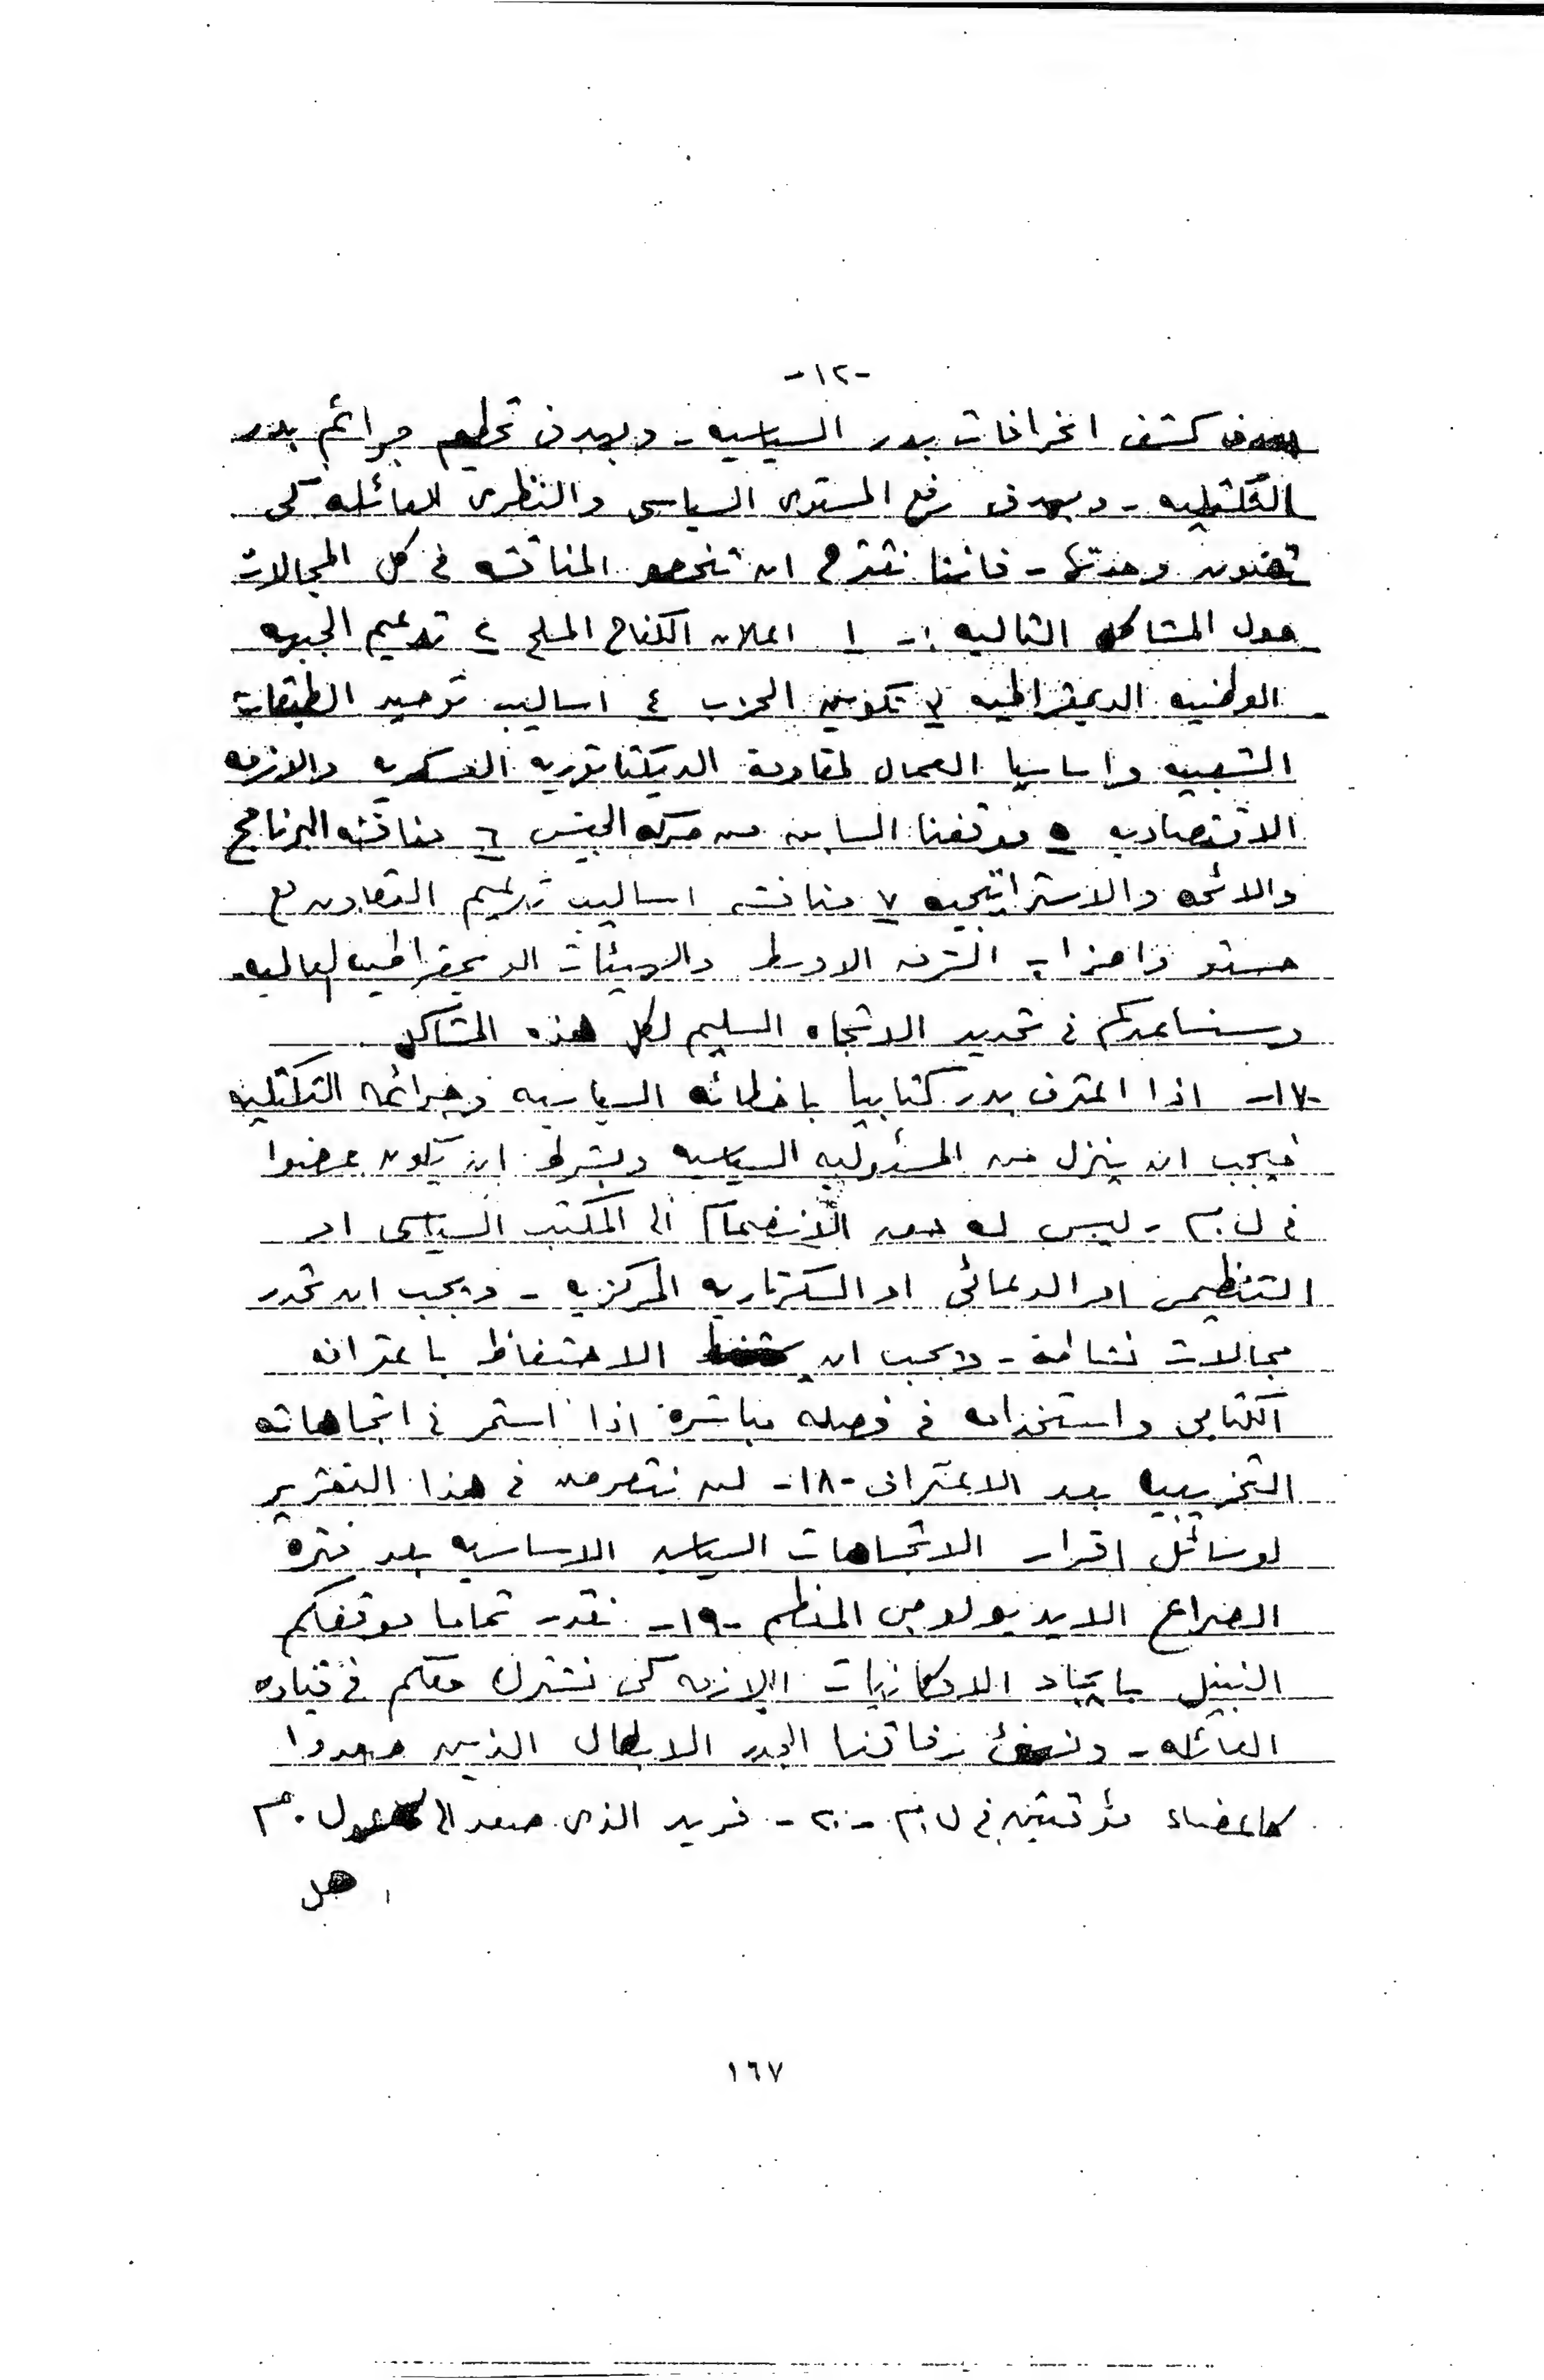 -١٢-
بهدف كشف انحرافات بدر السياسيه - وبهدف تحطيم جرائم بدر
التكتليه - وبهدف رفع المستوى السياسى والنظرى للعائله لكى
تصون وحدتها - فاننا نقترح ان تنحصر المناقشه فى كل المجالات
حول المشاكل التاليه :- ١ اعلان الكفاح المسلح ٢ تدعيم الجبهه
الوطنيه الديمقراطيه ٣ تكوين الحزب ٤ اساليب توحيد الطبقات
الشعبيه واساسيا العمال لمقاومة الديكتاتوريه العسكريه والازمه
الاقتصاديه ٥ موقفنا السابق من حركه الجيش ٦ مناقشه البرنامج
والائحه والاستراتيجيه ٧ مناقشه اساليب تدعيم التعاون مع
حستو واحزاب الشرق الاوسط والهيئات الديمقراطيه العاليه
وسنساعدكم فى تحديد الاتجاه السليم لكل هذه المشاكل
-١٧- اذا اعترف بدر كتابيا باخطائه السياسيه وجرائمه التكتليه
فيجب ان ينزل من المسئوليه السياسيه وبشرط ان يكون عضوا
فى ل.م - ليس له حق الانضمام الى المكتب السياسى او
التنظيمى او الدعائى او السكرتاريه المركزيه - ويجب ان تحدد
مجالات نشاطه - ويجب ان الاحتفاظ باعترافه
الكتابى واستخدامه فى فصله مباشرة اذا استمر فى اتجاهاته
التخريبيه بعد الاعتراف -١٨- لن نتعرض فى هذا التقرير
لوسائل اقرار الاتجاهات السياسيه الاساسيه بعد فتره
الصراع الايديولوجى المنظم -١٩- نقدر تماما موقفكم
النبيل بايجاد الامكانيات اللازمه لكى نشترك معكم فى قياده
العائله - ونهنئ رفاقنا الجدد الابطال الذين صعدوا
كاعضاء مؤقتين فى ل.م -٢٠- فريد الذى صعد الى ل.م
هل
١٦٧